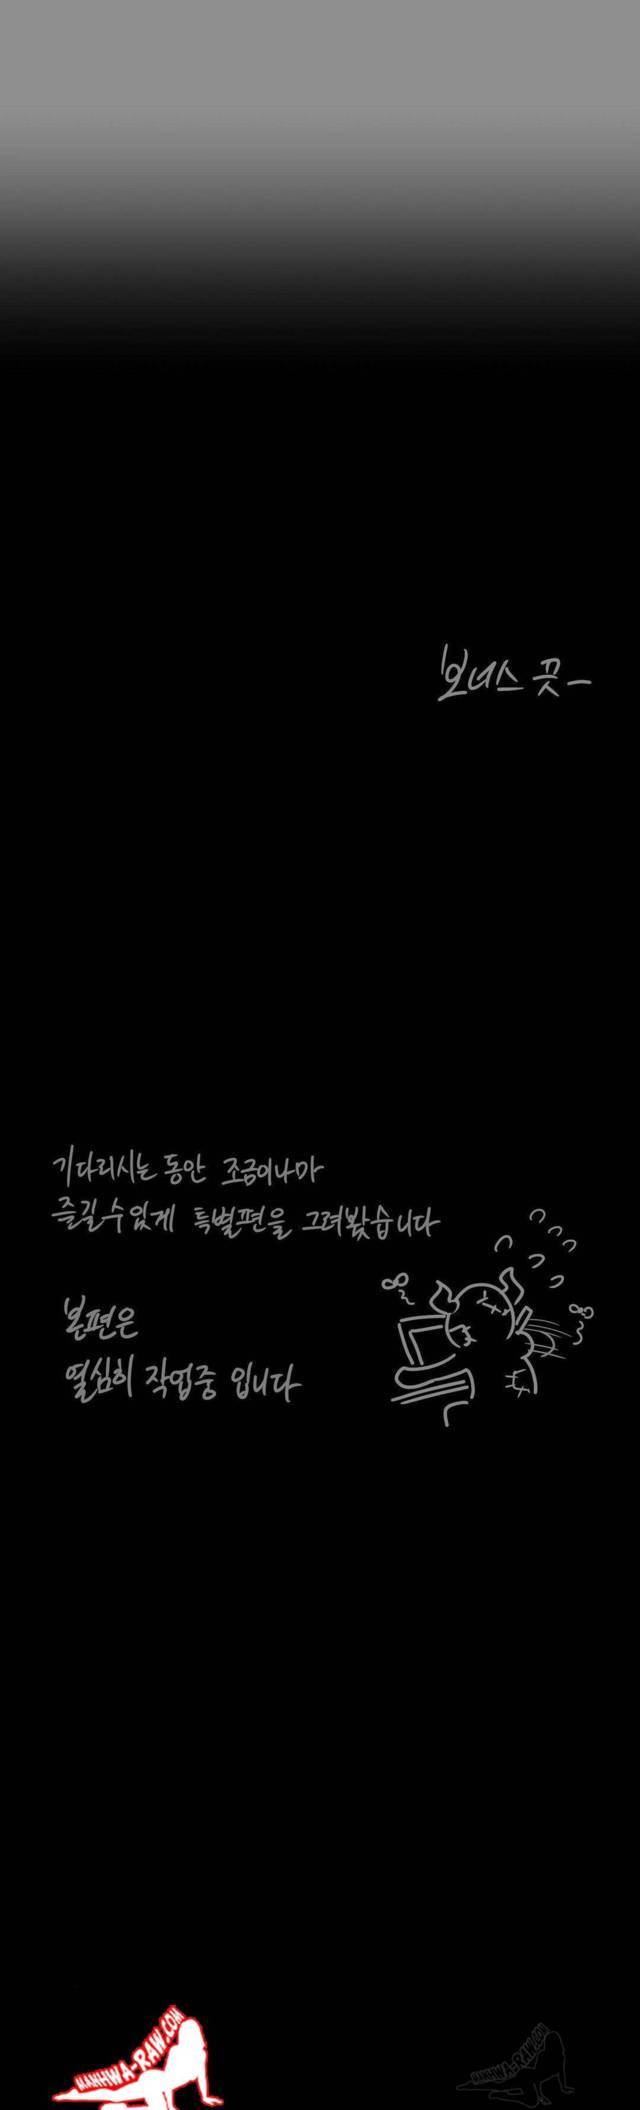 보너스 끗-
기다리시는 동안 조금이나마
즐길수있게 특별편을 그려봤습니다
본편은
열심히 작업중 입니다
MANHWA-RAW.COM
MANHWA-RAW.COM